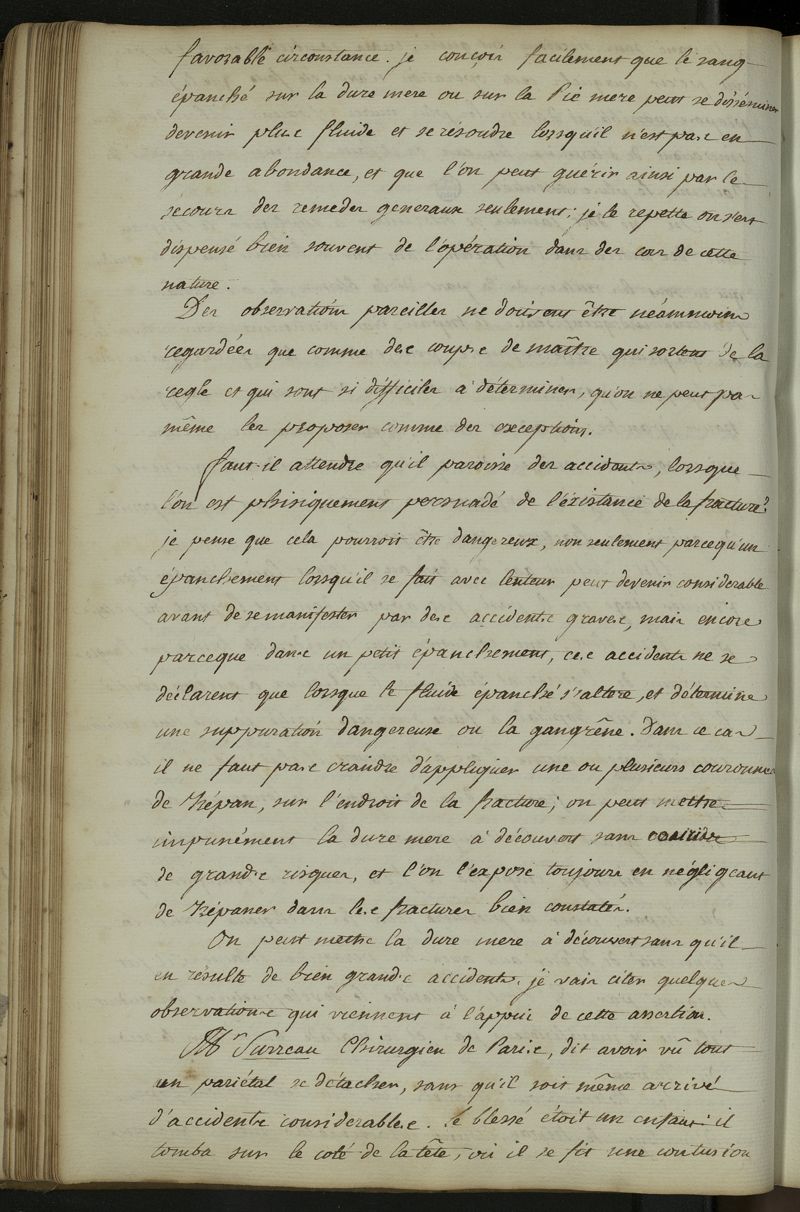 favorable circonstance. je conçois facilement que le sang
épanché sur la dure mere ou sur la Pie mere peut se disséminer
devenir plus fluide et se résoudre lorsqu'il n'est pas en
grande abondance, et que l'on peut guérir ainsi par le
secours des remedes generaux seulement; je le repette on s'est
dispensé bien souvent de l'opération dans des cas de cette
nature.
Des observations pareilles ne doivent être néammoins
regardées que comme des coups de maître qui sortent de la
regle et qui sont si difficiles à déterminer, qu'on ne peut pas
même les proposer comme des exceptions.
faut-il attendre qu'il paroisse des accidents, lorsque
l'on est phisiquement persuadé de l'éxistance de la fracture?
je pense que cela pourroit être dangereux, non seulement parcequ'un
épanchement lorsqu'il se fait avec lenteur peut devenir considerable
avant de se manifester par des accidents graves, mais encore
parceque dans un petit épanchement, ces accidents ne se
déclarent que lorsque le fluide épanché s'altere, et détermine
une suppuration dangereuse ou la gangrêne. Dans ce cas
il ne faut pas craindre d'appliquer une ou plusieurs couronnes
de trépan, sur l'endroit de la fracture; on peut mettre
impunément la dure mere à découvert sans courir
de grands risques, et l'on l'expose toujours en négligeant
de trépaner dans les fractures bien constatés.
On peut mettre la dure mere à découvert sans qu'il
en résulte de bien grands accidents. je vais citer quelques
observations qui viennent à l'appui de cette assertion.
Mr Surreau Chirurgien de Paris, dit avoir vû tout
un pariétal se détacher, sans qu'il soit même arrivé
d'accidents considerables. le blessé étoit un enfant: il
tomba sur le coté de la tête, où il se fit une contusion